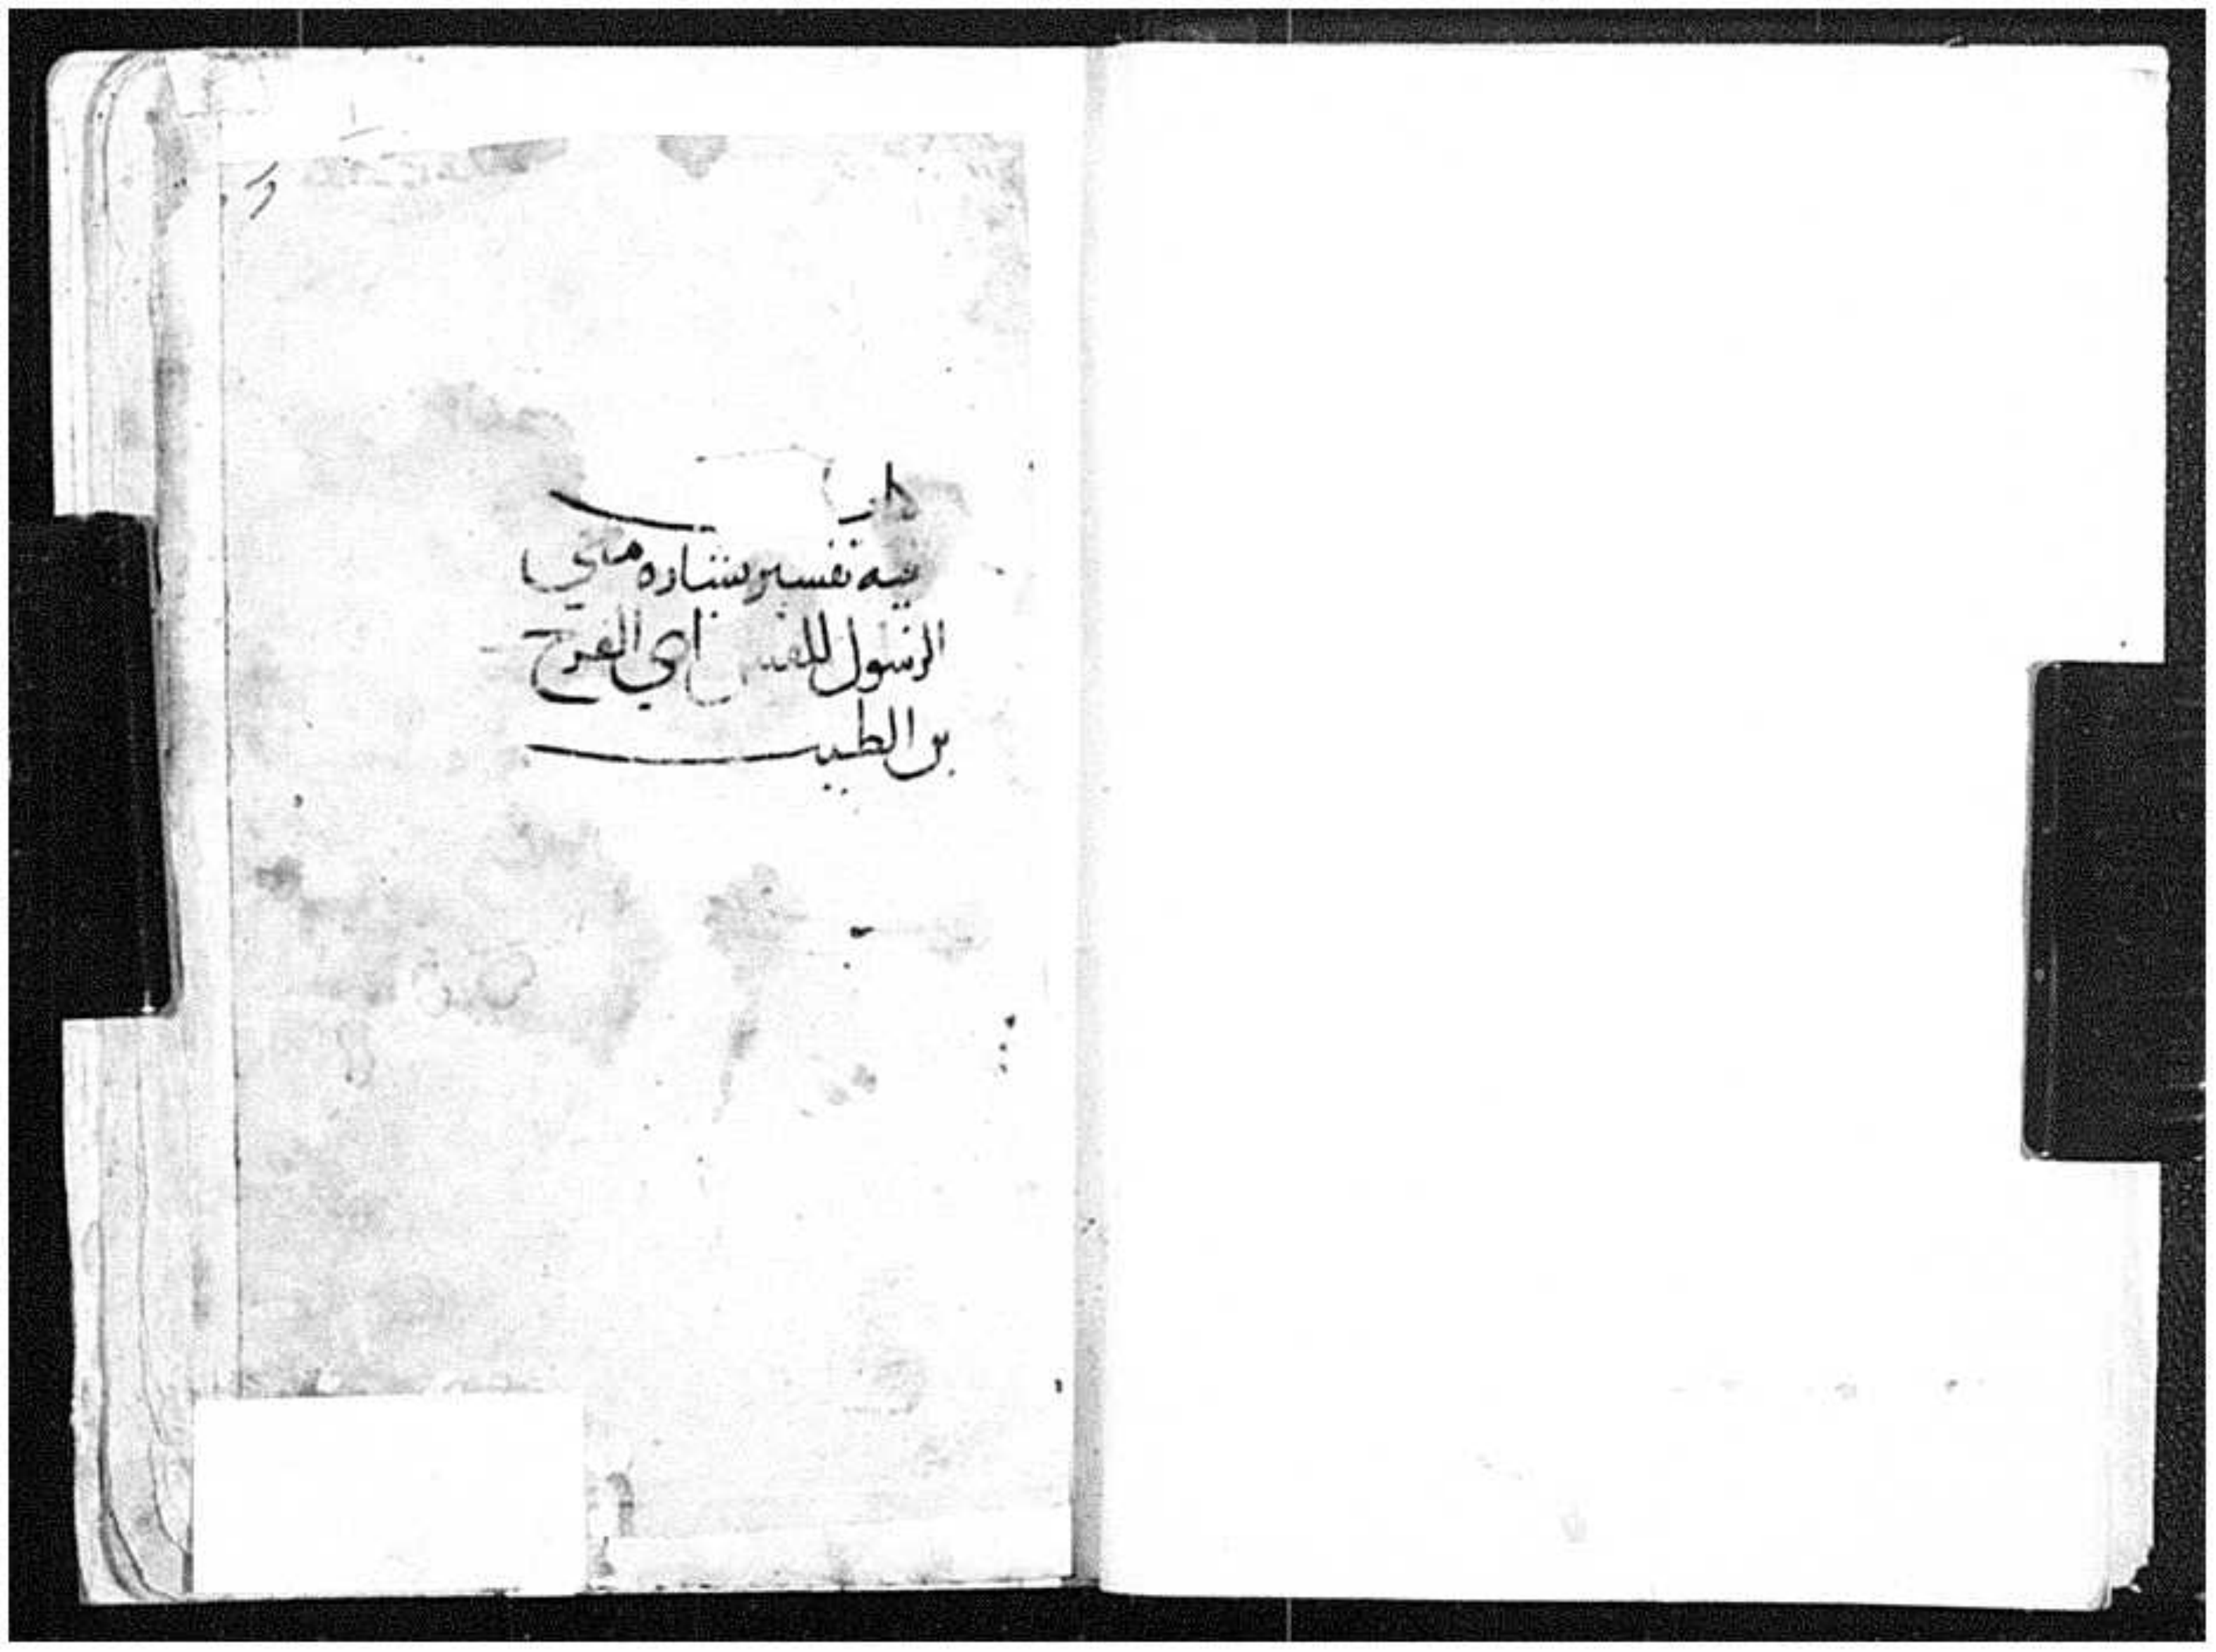 كتاب
فيه تفسير بشاره متي
الرسول للقس ابي الفرج
بن الطيب